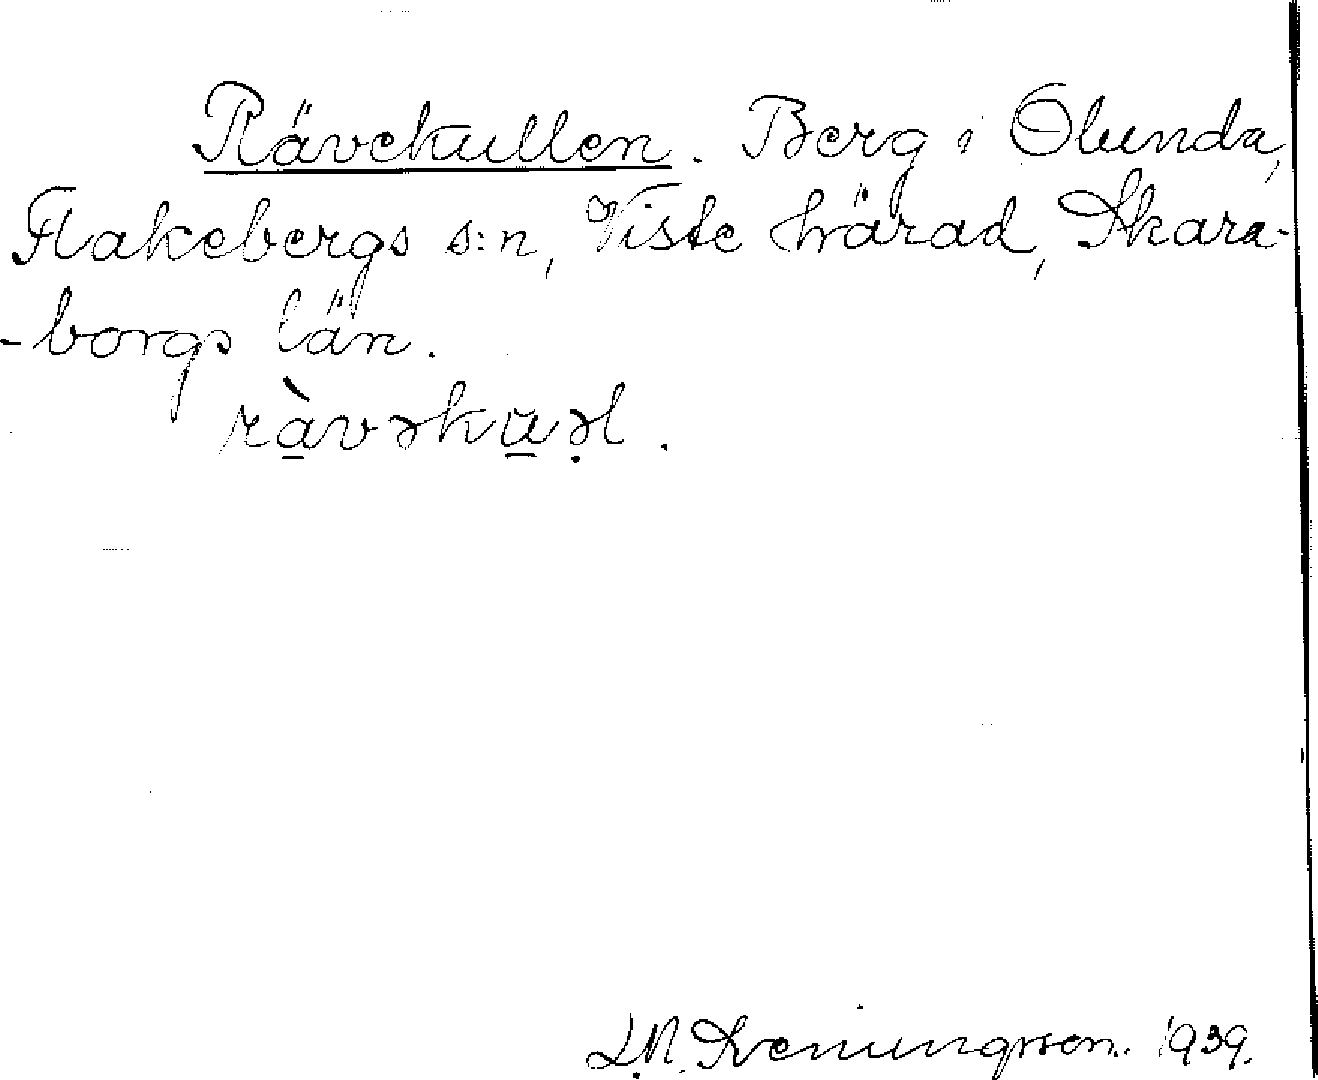 Rävekullen. Berg i Olunda,
Flakebergs s:n, Viste härad, Skara-
-borgs län.
ràvəkuəl.
L.N. Sveningsson. 1939.